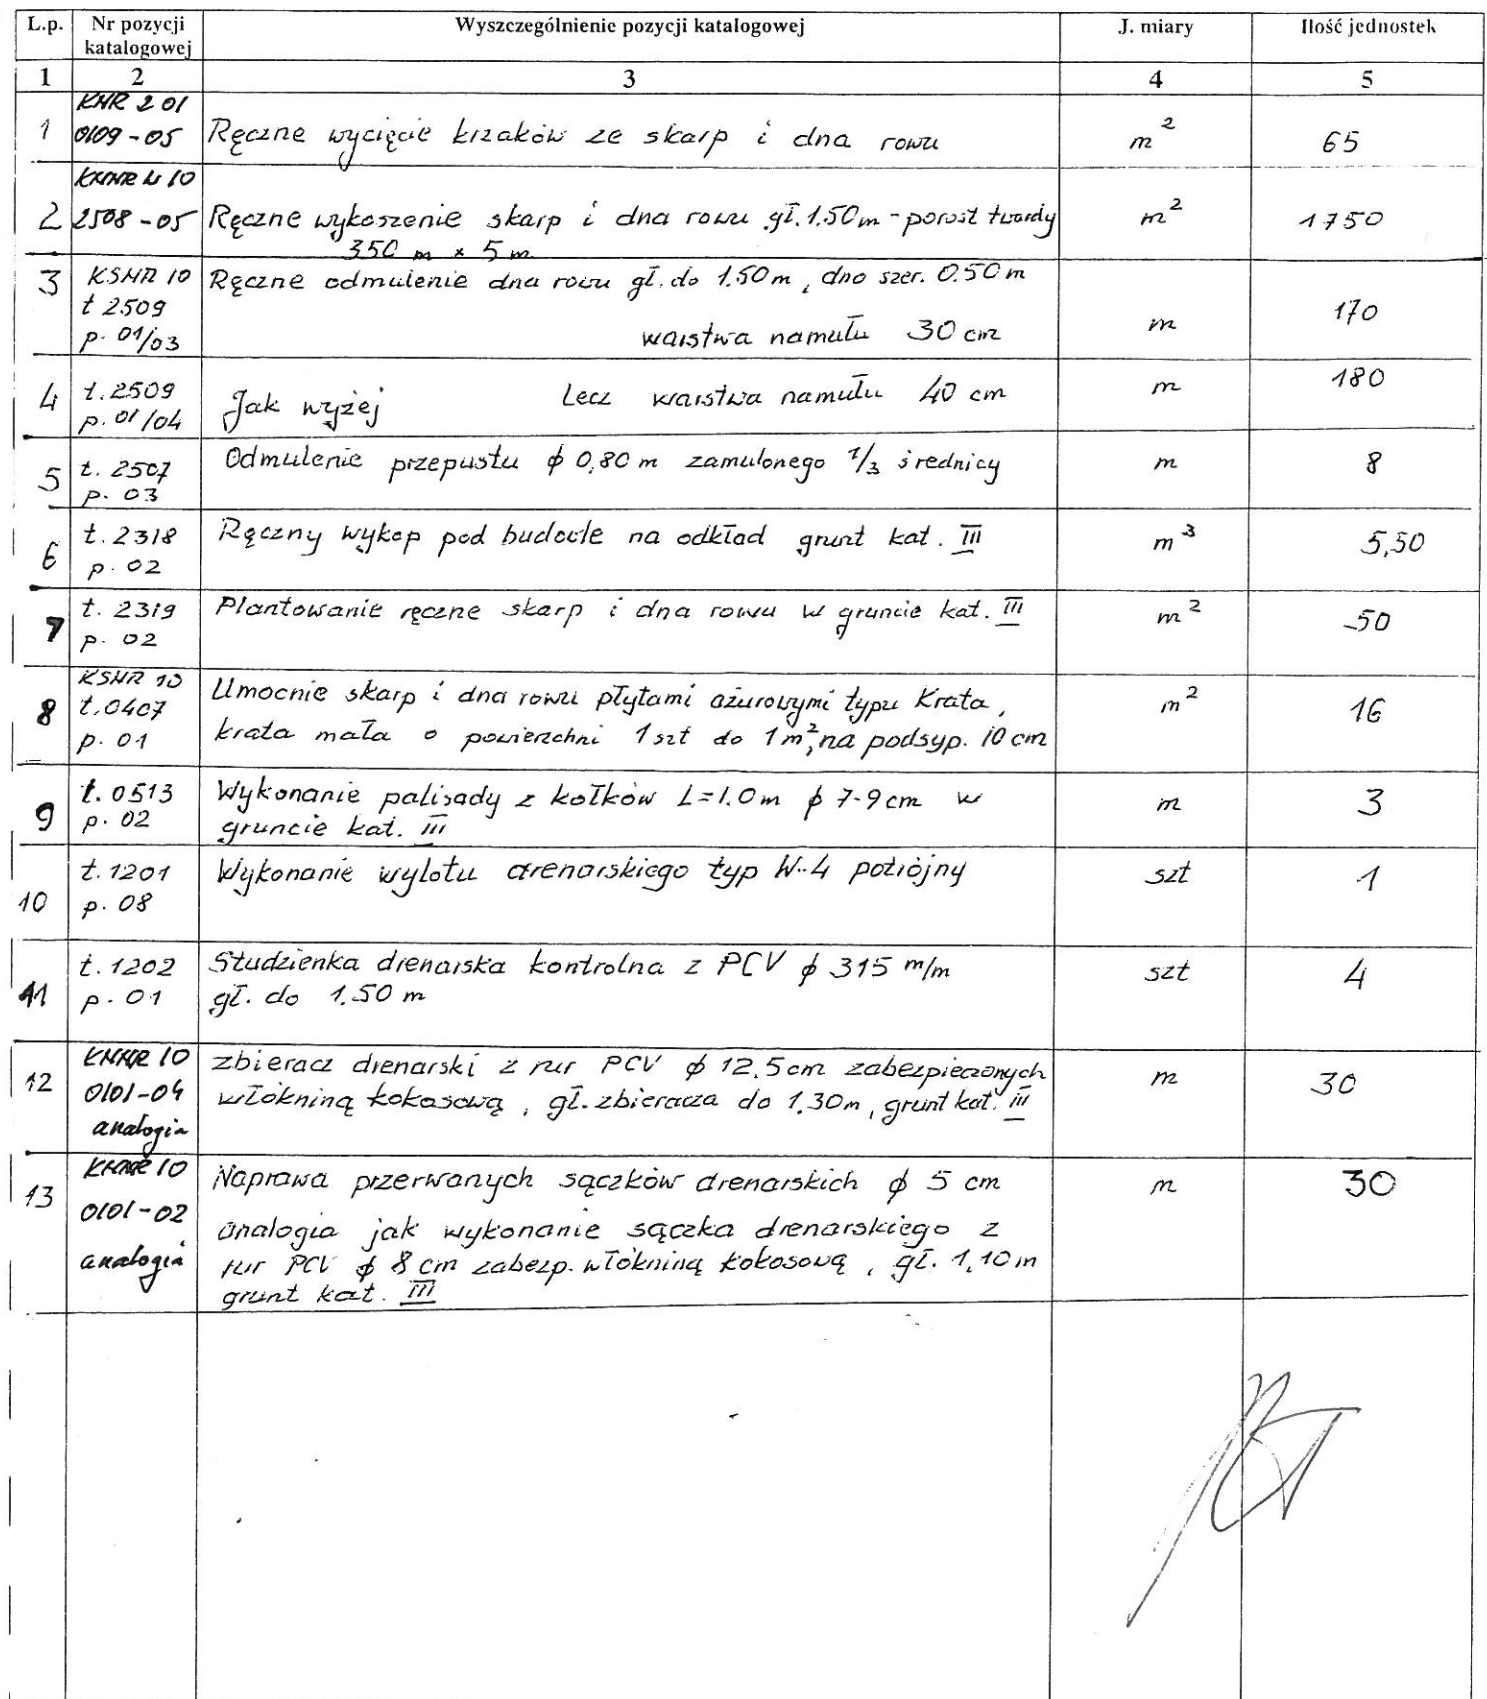 L.p. Nr pozycji katalogowej Wyszczególnienie pozycji katalogowej J. miary Ilość jednostek
1 2 3 4 5
KNR 2 01
1 0109-05 Ręczne wycięcie krzaków ze skarp i dna rowu m² 65
KNNR N 10
2 2508-05 Ręczne wykoszenie skarp i dna rowu gł. 1.50m - porost twardy m² 1750
350 m x 5 m
3 KSNR 10 Ręczne odmulenie dna rowu gł. do 1.50m, dno szer. 0.50m
t 2509
p. 01/03 warstwa namułu 30 cm m 170
4 t. 2509 Jak wyżej Lecz warstwa namułu 40 cm m 180
p. 01/04
5 t. 2507 Odmulenie przepustu ϕ 0,80 m zamulonego 1/3 średnicy m 8
p. 03
6 t. 2318 Ręczny wykop pod budowle na odkład grunt kat. III m³ 5,50
p. 02
7 t. 2319 Plantowanie ręczne skarp i dna rowu w gruncie kat. III m² 50
p. 02
KSNR 10
8 t. 0407 Umocnie skarp i dna rowu płytami ażurowymi typu Krata, m² 16
p. 01 krata mała o powierzchni 1 szt do 1m², na podsyp. 10 cm
9 t. 0513 Wykonanie palisady z kołków L=1.0m ϕ 7-9cm w m 3
p. 02 gruncie kat. III
10 t. 1201 Wykonanie wylotu drenarskiego typ W-4 potrójny szt 1
p. 08
11 t. 1202 Studzienka drenarska kontrolna z PCV ϕ 315 m/m szt 4
p. 01 gł. do 1.50 m
KNNR 10 zbieracz drenarski z rur PCV ϕ 12.5cm zabezpieczonych
12 0101-04 włókniną kokosową, gł. zbieracza do 1.30m, grunt kat. III m 30
analogia
KNNR 10
13 0101-02 Naprawa przerwanych sączków drenarskich ϕ 5 cm m 30
analogia analogia jak wykonanie sączka drenarskiego z
rur PCV ϕ 8 cm zabezp. włókniną kokosową, gł. 1,10m
grunt kat. III